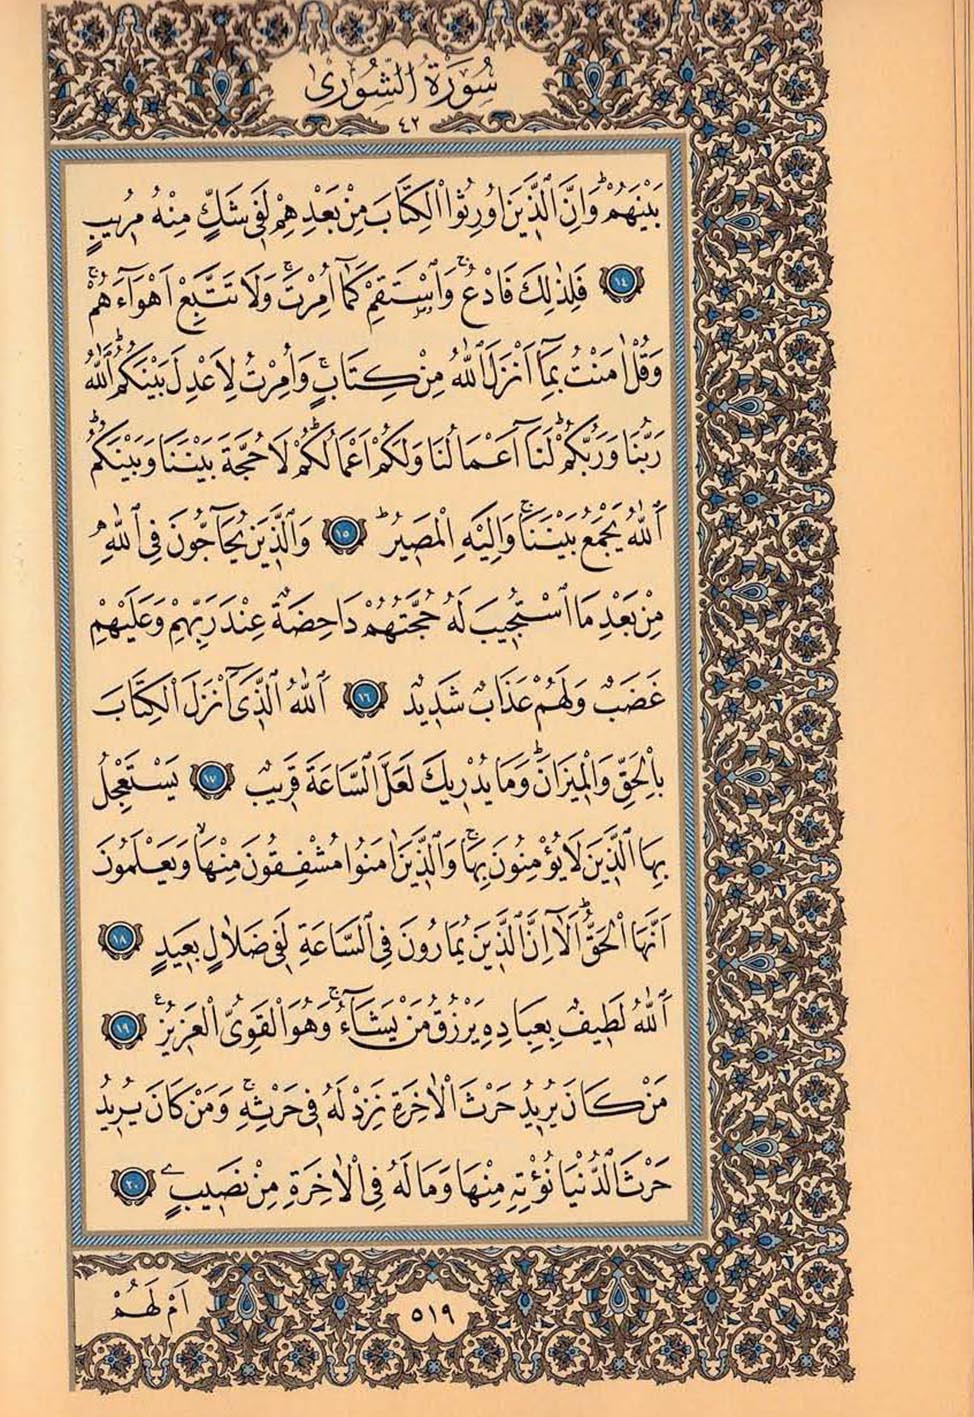 سُورَةُ الشُّورٰى
٤٢
بَيْنَهُمْۜ وَاِنَّ الَّذ۪ينَ اُورِثُوا الْكِتَابَ مِنْ بَعْدِهِمْ لَف۪ي شَكٍّ مِنْهُ مُر۪يبٍ
١٤ فَلِذٰلِكَ فَادْعُۚ وَاسْتَقِمْ كَمَٓا اُمِرْتَۚ وَلَا تَتَّبِعْ اَهْوَٓاءَهُمْۚ
وَقُلْ اٰمَنْتُ بِمَٓا اَنْزَلَ اللّٰهُ مِنْ كِتَابٍۚ وَاُمِرْتُ لِاَعْدِلَ بَيْنَكُمْۜ اَللّٰهُ
رَبُّنَا وَرَبُّكُمْۜ لَنَٓا اَعْمَالُنَا وَلَكُمْ اَعْمَالُكُمْۜ لَا حُجَّةَ بَيْنَنَا وَبَيْنَكُمْۜ
اَللّٰهُ يَجْمَعُ بَيْنَنَاۚ وَاِلَيْهِ الْمَص۪يرُۜ ١٥ وَالَّذ۪ينَ يُحَٓاجُّونَ فِي اللّٰهِ
مِنْ بَعْدِ مَا اسْتُج۪يبَ لَهُ حُجَّتُهُمْ دَاحِضَةٌ عِنْدَ رَبِّهِمْ وَعَلَيْهِمْ
غَضَبٌ وَلَهُمْ عَذَابٌ شَد۪يدٌ ١٦ اَللّٰهُ الَّذ۪ٓي اَنْزَلَ الْكِتَابَ
بِالْحَقِّ وَالْم۪يزَانَۜ وَمَا يُدْر۪يكَ لَعَلَّ السَّاعَةَ قَر۪يبٌ ١٧ يَسْتَعْجِلُ
بِهَا الَّذ۪ينَ لَا يُؤْمِنُونَ بِهَاۚ وَالَّذ۪ينَ اٰمَنُوا مُشْفِقُونَ مِنْهَاۙ وَيَعْلَمُونَ
اَنَّهَا الْحَقُّۜ اَلَٓا اِنَّ الَّذ۪ينَ يُمَارُونَ فِي السَّاعَةِ لَف۪ي ضَلَالٍ بَع۪يدٍ ١٨
اَللّٰهُ لَط۪يفٌ بِعِبَادِه۪ يَرْزُقُ مَنْ يَشَٓاءُۚ وَهُوَ الْقَوِيُّ الْعَز۪يزُ۟ ١٩
مَنْ كَانَ يُر۪يدُ حَرْثَ الْاٰخِرَةِ نَزِدْ لَهُ ف۪ي حَرْثِه۪ۚ وَمَنْ كَانَ يُر۪يدُ
حَرْثَ الدُّنْيَا نُؤْتِه۪ مِنْهَا وَمَا لَهُ فِي الْاٰخِرَةِ مِنْ نَص۪يبٍ ٢٠
اَمْ لَهُمْ
٥١٩